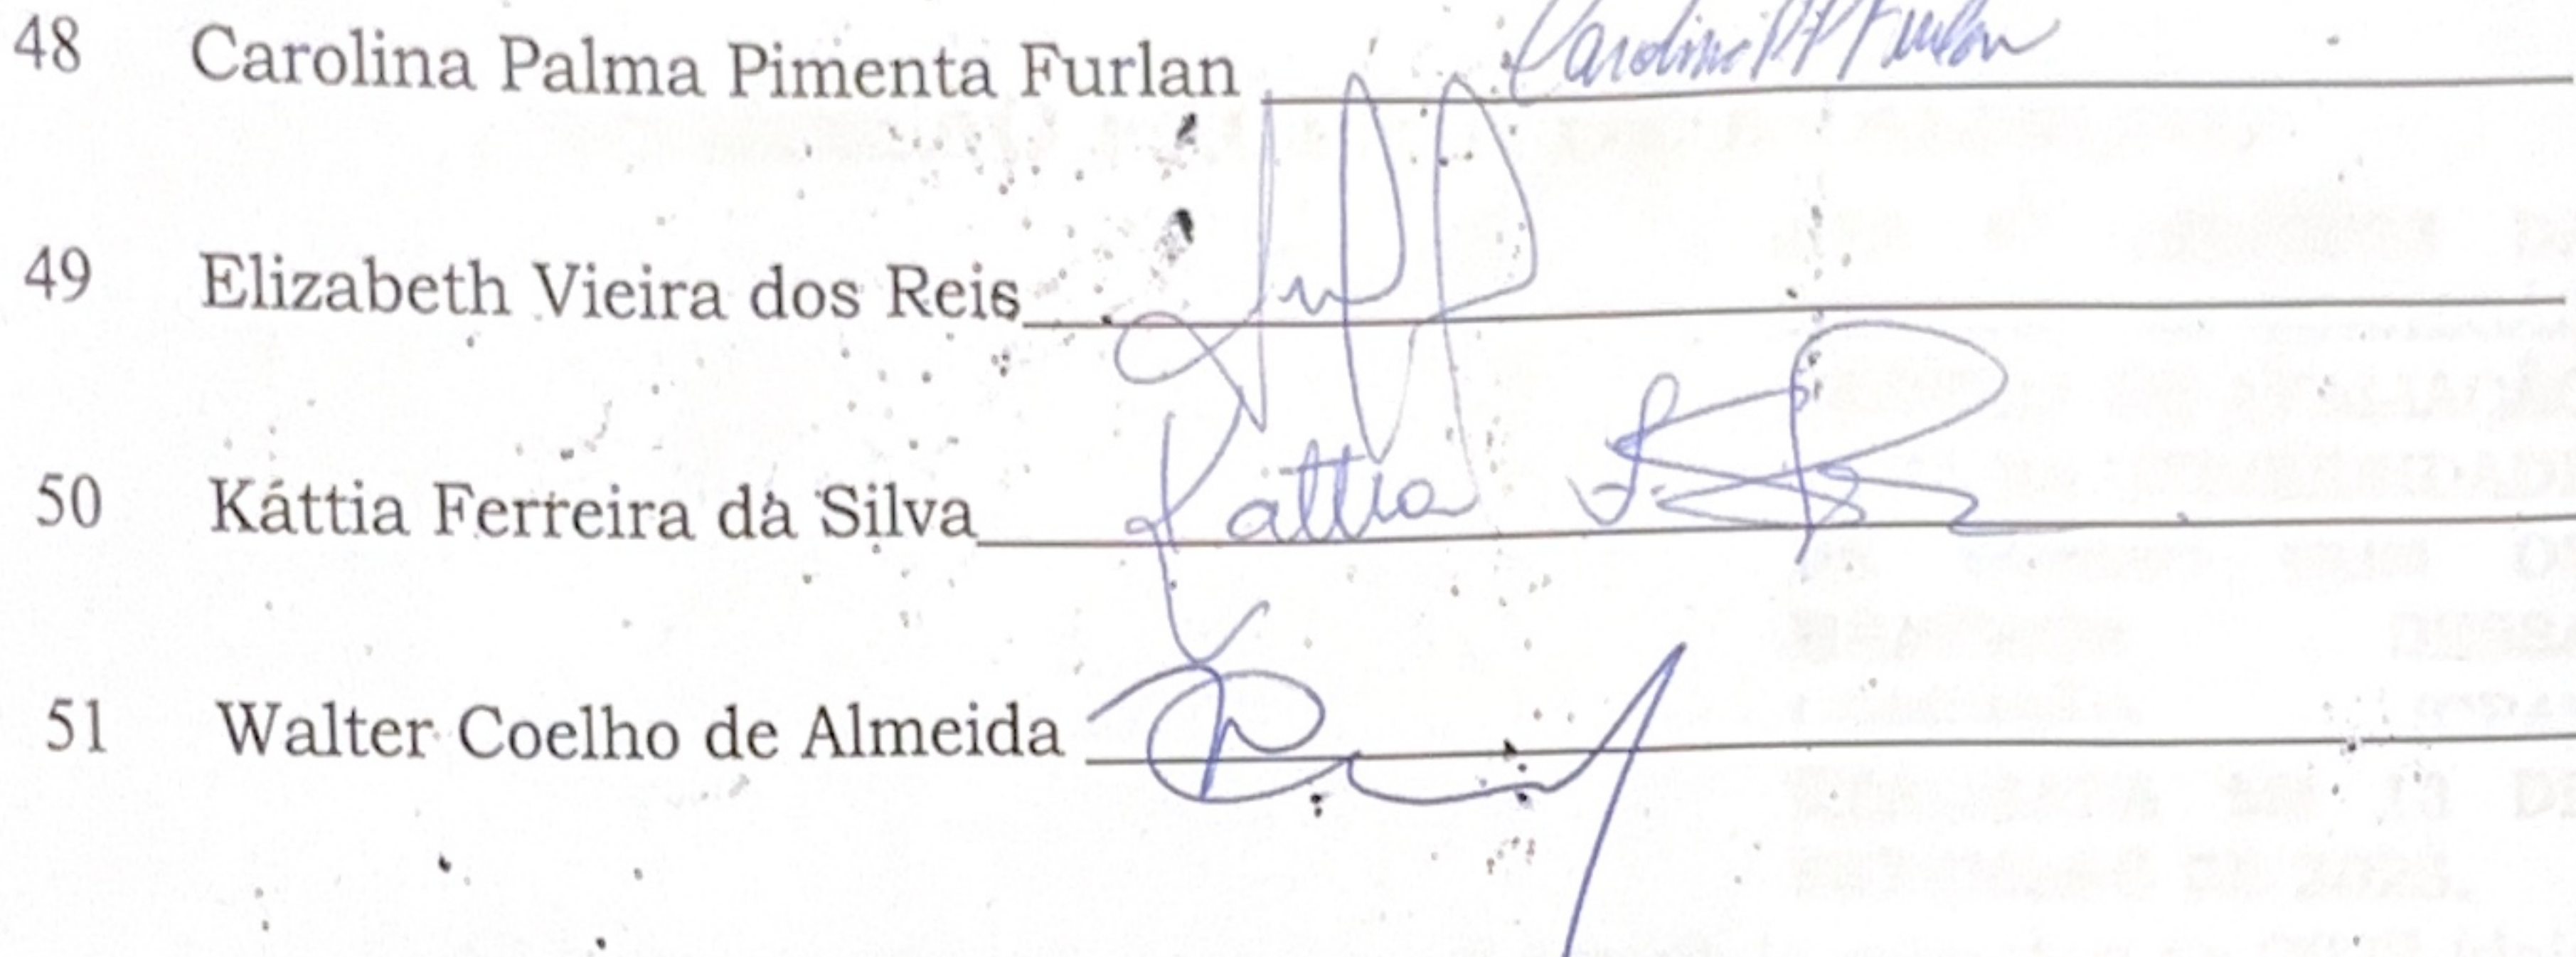 48 Carolina Palma Pimenta Furlan Carolina PP Furlan
49 Elizabeth Vieira dos Reis
50 Káttia Ferreira da Silva Kattia
51 Walter Coelho de Almeida